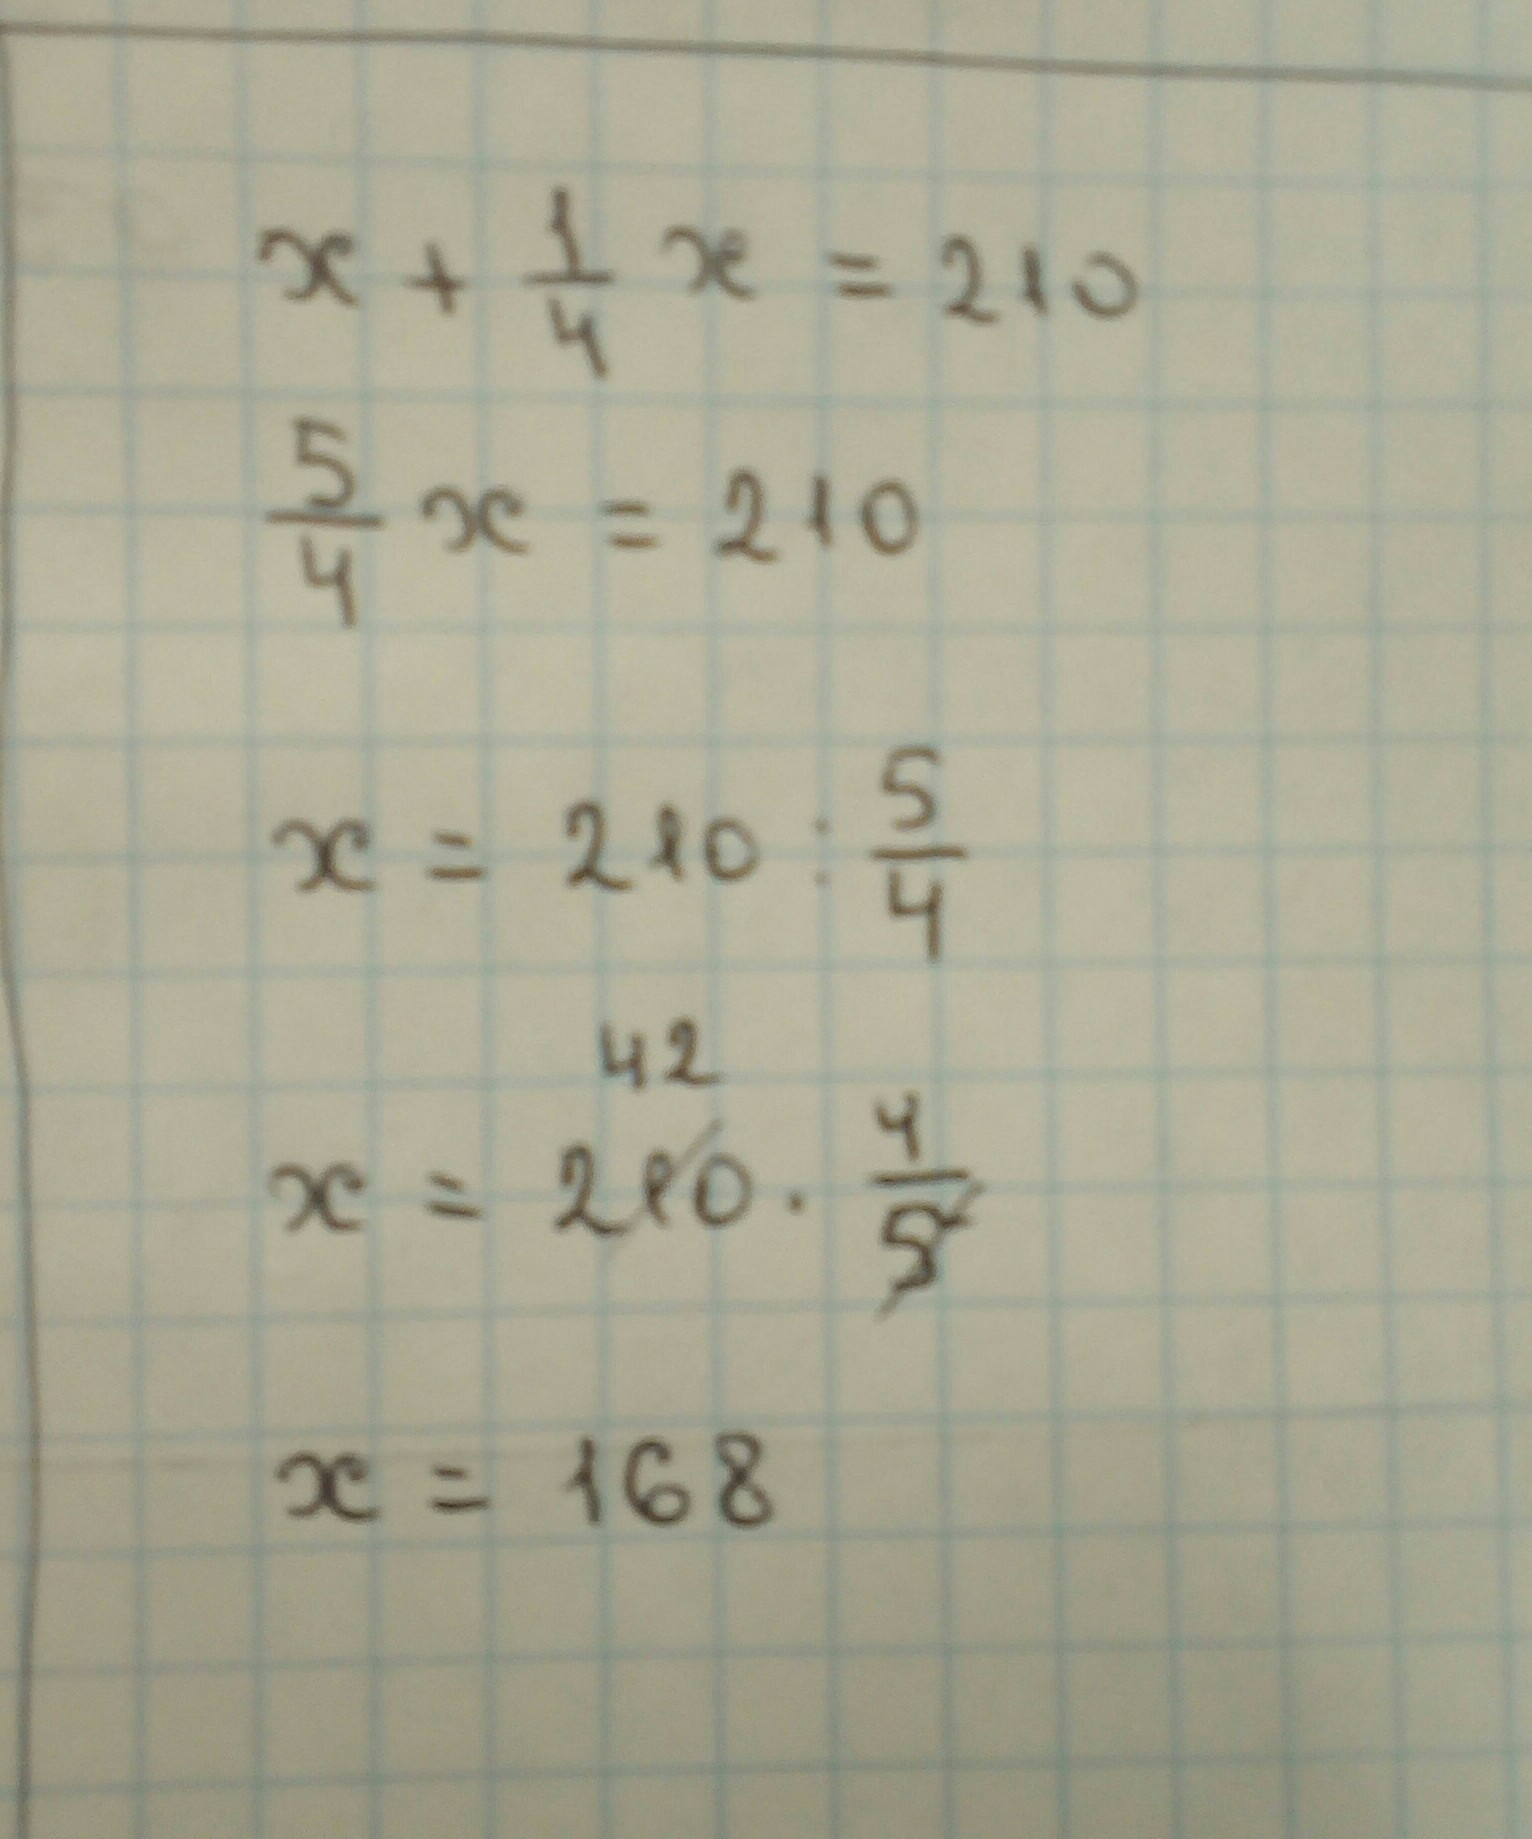 x + 1/4 x = 210
5/4 x = 210
x = 210 : 5/4
42
x = 210 · 4/5
x = 168